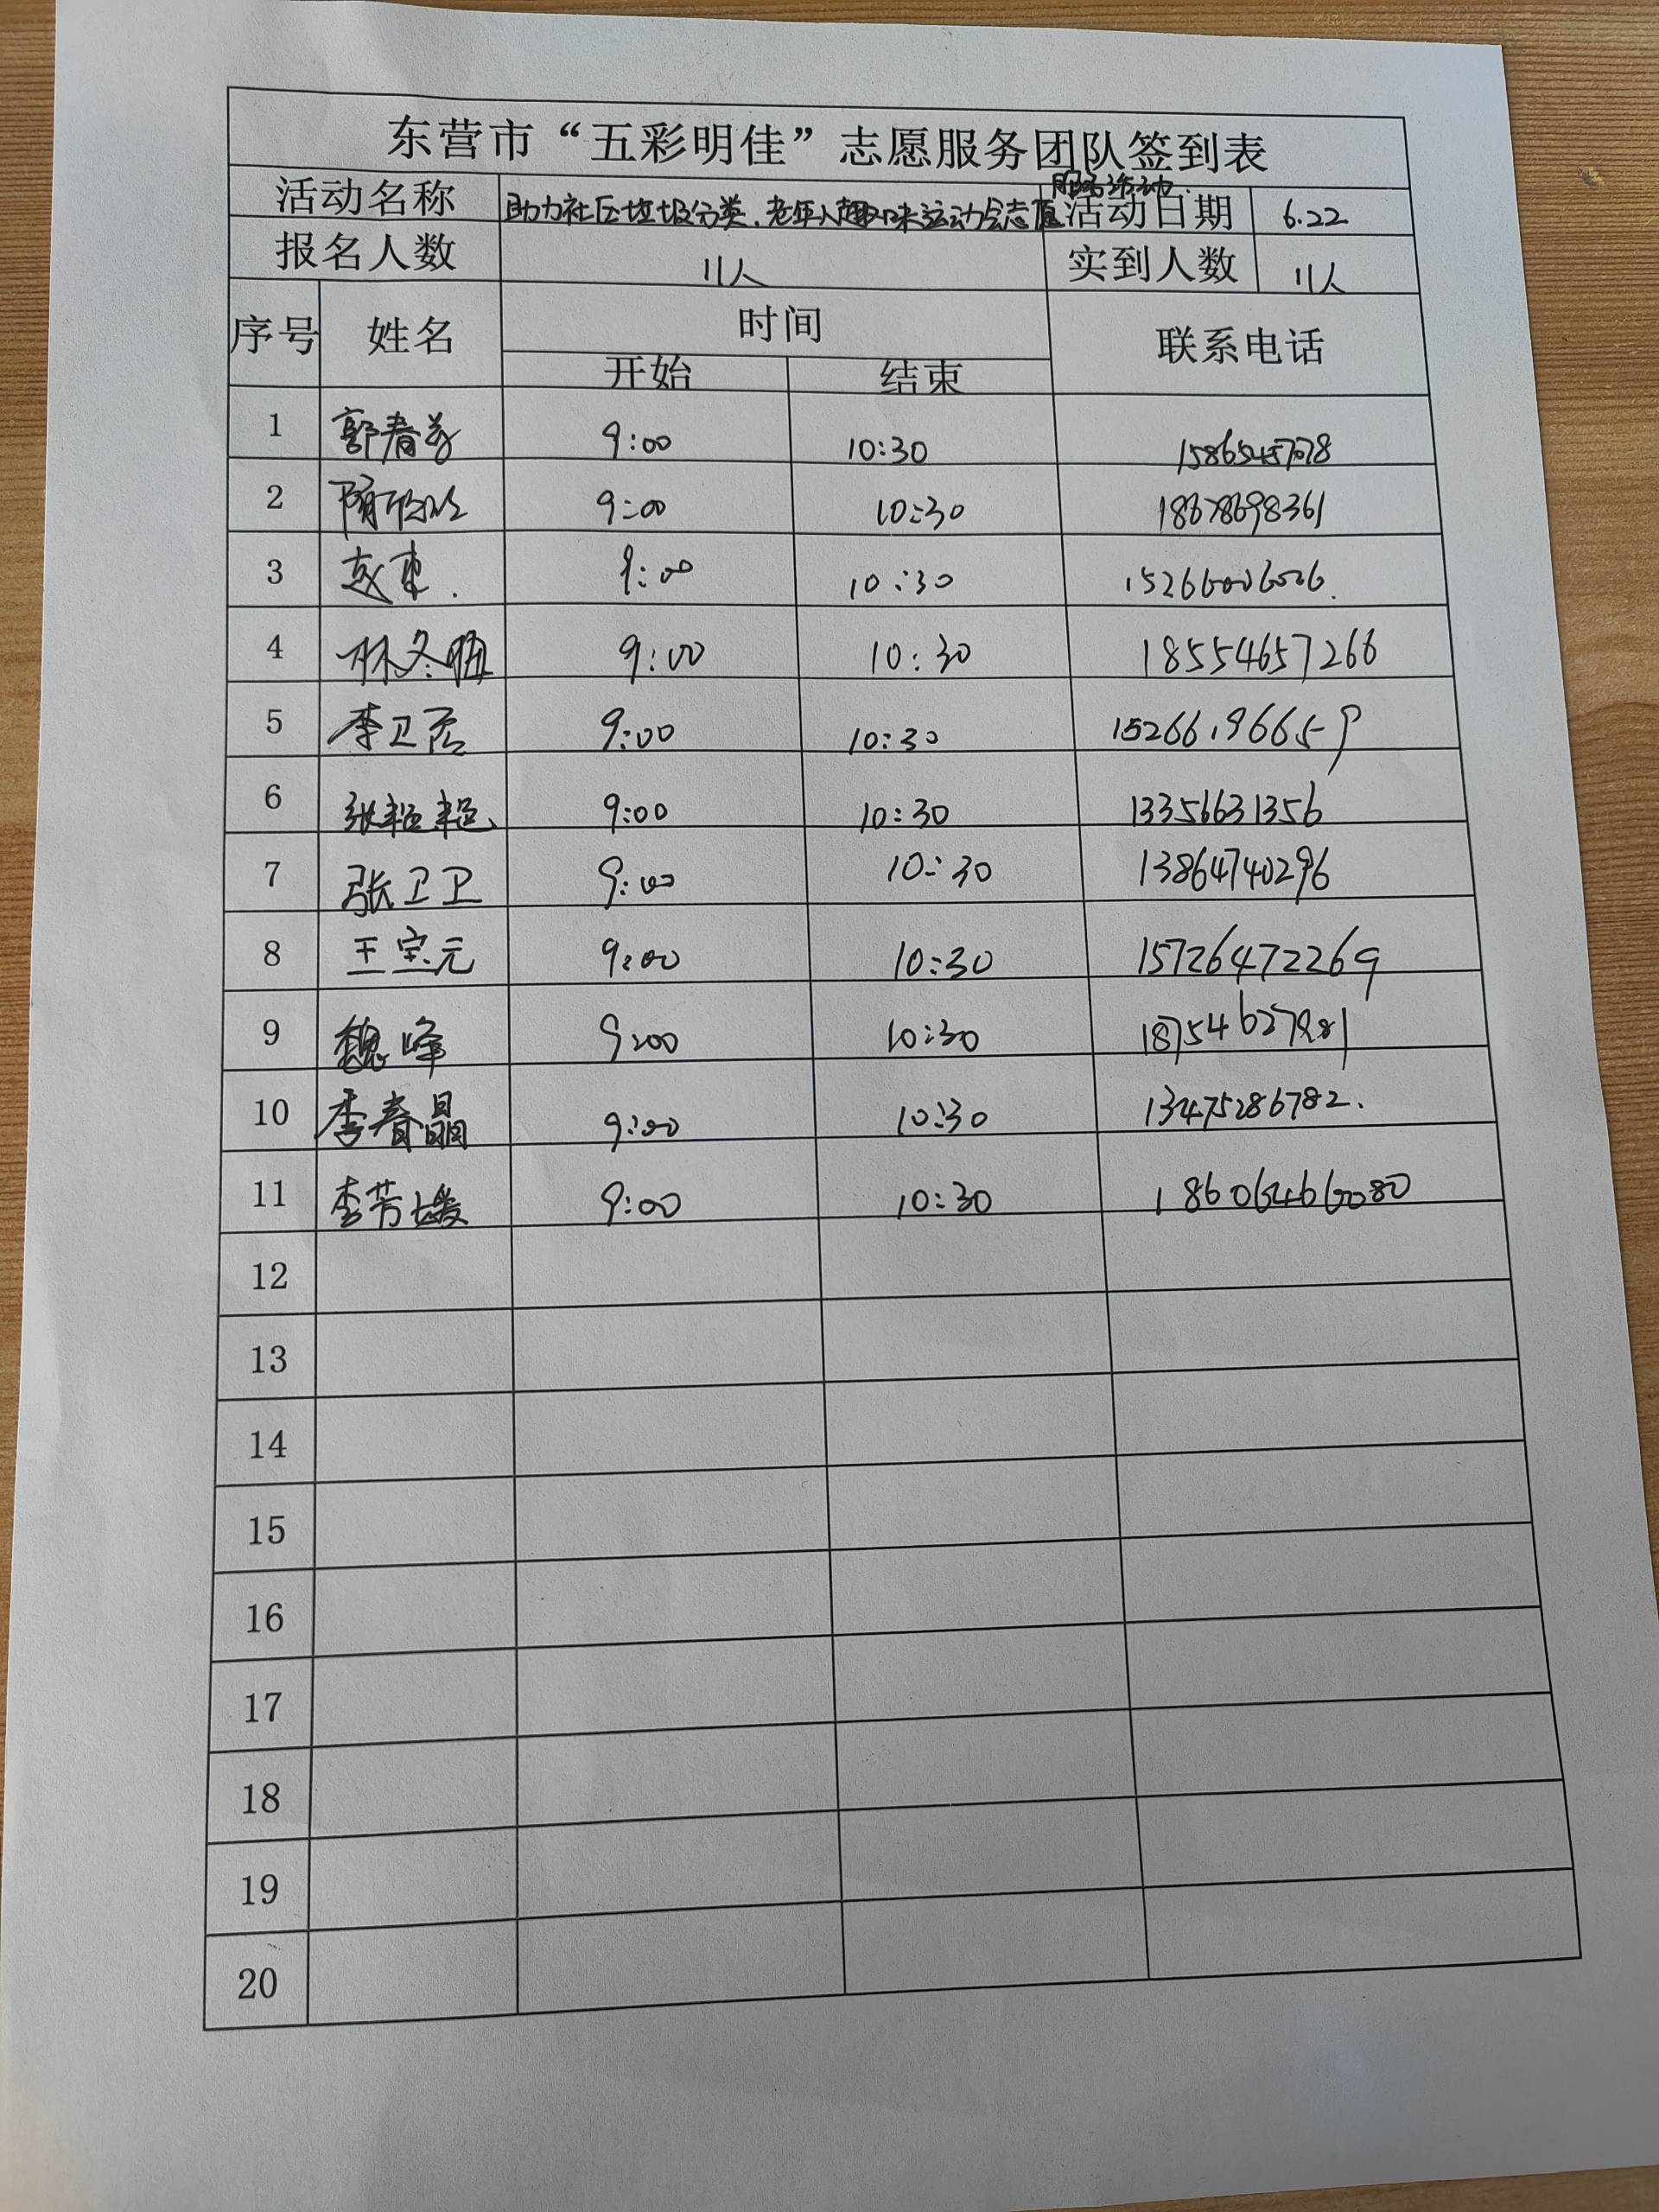 东营市“五彩明佳”志愿服务团队签到表
活动名称 助力社区垃圾分类、老年人趣味运动会志愿服务活动. 活动日期 6.22
报名人数 11人 实到人数 11人
序号 姓名 时间 联系电话
开始 结束
1 郭春 9:00 10:30
2 隋 9:00 10:30 18678698361
3 9:00 10:30
4 林冬梅 9:00 10:30 18554657266
5 李卫 9:00 10:30 15266196659
6 张超超 9:00 10:30 13356631356
7 张卫卫 9:00 10:30 13864740296
8 王宝元 9:00 10:30 15726472269
9 魏峰 9:00 10:30
10 李春晶 9:00 10:30 13475286782.
11 李芳媛 9:00 10:30
12
13
14
15
16
17
18
19
20